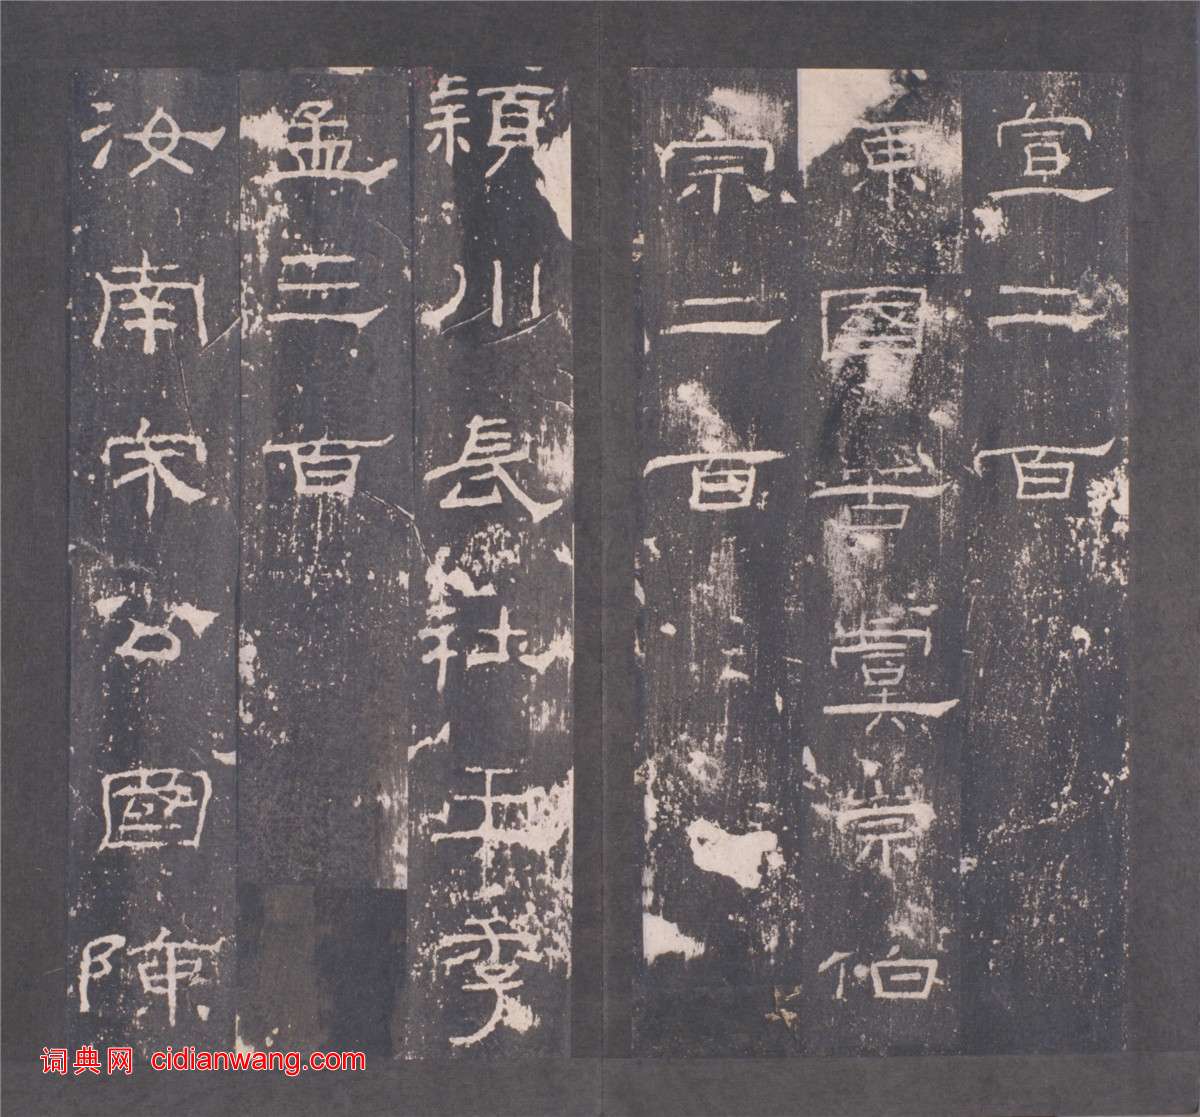 宣二百
陳國苦虞崇伯
宗二百
潁川長社王季
孟三百
汝南宋公國陳
词典网 cidianwang.com